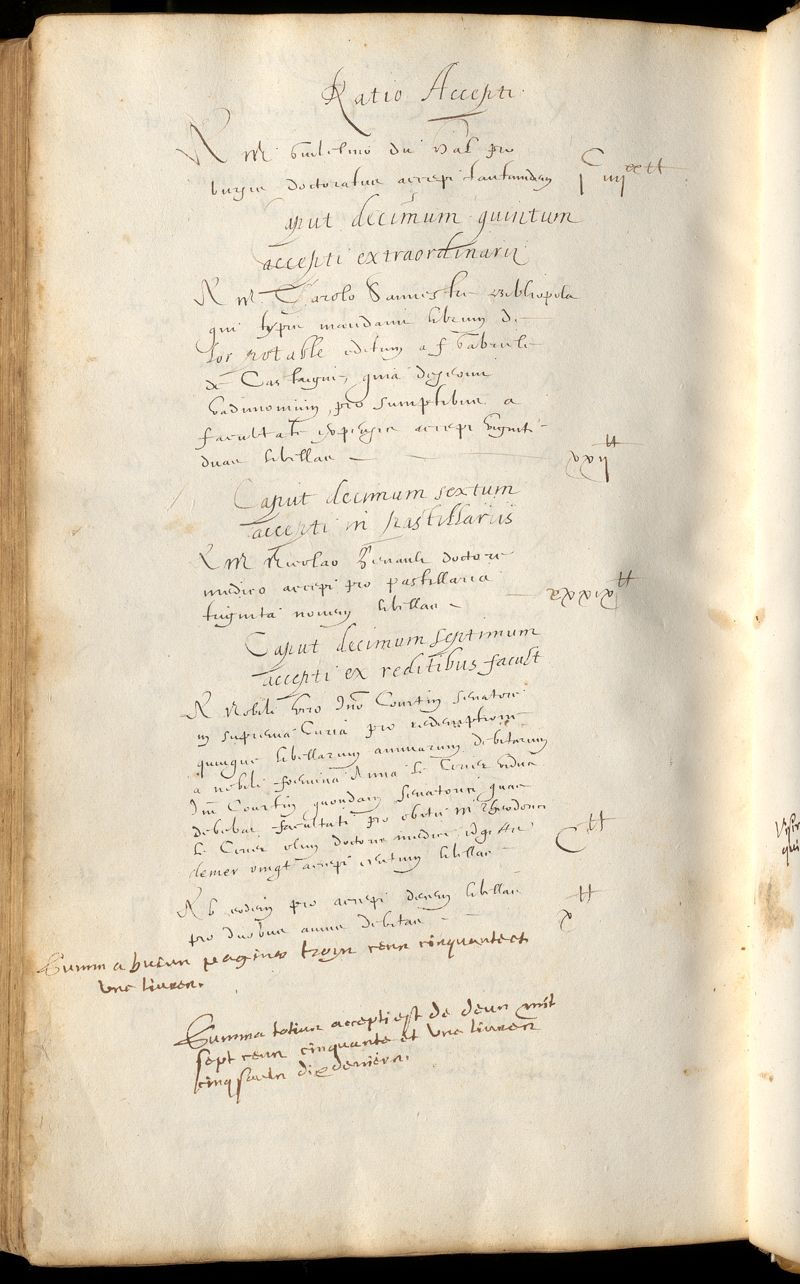 Ratio Accepti.
A M. Guilelmo du Val pro
bursis doctoratus accepi tantumdem C iiij xx tt
Caput decimum quintum
accepti extraordinarij
A M. Carolo bibliopola
qui typis mandavit librum de
lor potable editum a f Gabriele
de Castaigne, quia deseruit
vadimonium, pro sumptibus a
facultate expensis accepi viginti
duas libellas xxij tt
Caput decimum sextum
accepti in pastillariis
A M Nicolao doctore
medico accepi pro pastillaria
triginta novem libellas xxxix tt
Caput decimum septimum
accepti ex reditibus facult
A Nobili viro Courtin senatore
in suprema Curia pro redemptione
quinque libellarum annuarum debitarum
a nobili foemina Anna le vidua
Courtin quondam senatoris quae
debebat facultati pro obitu M
le olim doctoris medici,
accepi centum libellas C tt
Ab eodem accepi decem libellas
pro duobus annis debitas x tt
Summa huius paginae troys cens cinquante et
une livres.
Summa totius accepti est de deux mil
sept cens cinquante et une livres
cinq solz dix deniers.